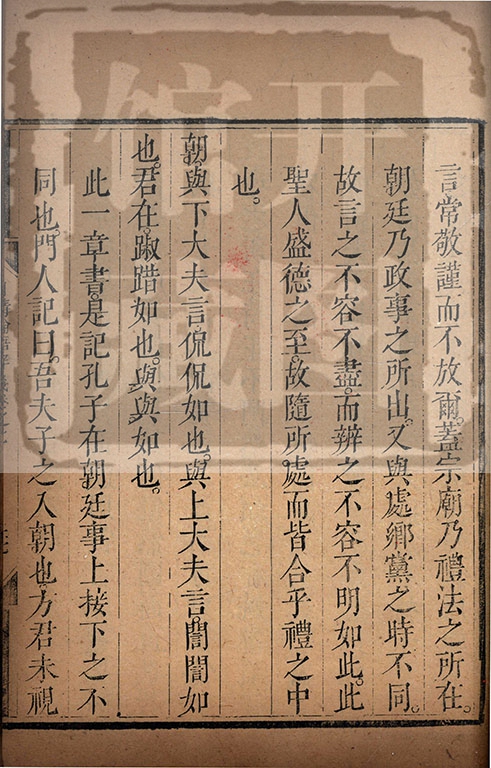 言常敬謹而不放爾。蓋宗廟乃禮法之所在。
朝廷乃政事之所出。又與處鄉黨之時不同。
故言之不容不盡。而辨之不容不明如此。此
聖人盛德之至。故隨所處而皆合乎禮之中
也。
朝。與下大夫言。侃侃如也。與上大夫言。誾誾如
也。君在。踧踖如也。與與如也。
此一章書。是記孔子在朝廷事上接下之不
同也。門人記曰。吾夫子之入朝也。方君未視
开
图
馆
藏